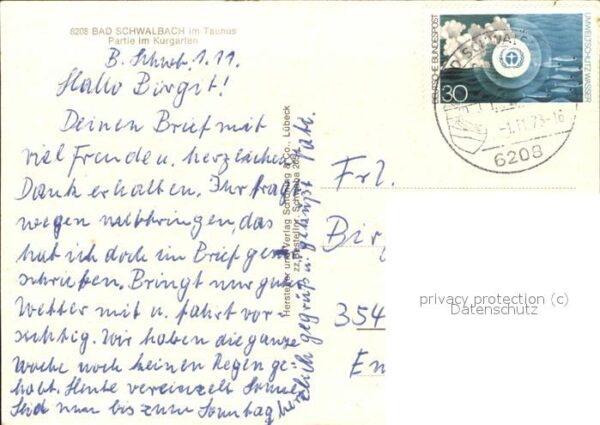 6208 BAD SCHWALBACH im Taunus
Partie im Kurgarten
B. Schwb. 1.11.
Hallo Birgit!
Deinen Brief mit
viel Freude u. herzlichem
Dank erhalten. Ihr fragt
wegen mitbringen, das
hab ich doch im Brief ge
schrieben. Bringt nur gut
Wetter mit u. fahrt vor-
sichtig. Wir haben die ganze
Woche noch keinen Regen ge-
habt. Heute vereinzelt Sonne
Seid nun bis zum Sonntag herz
lich gegrüßt u. geküßt
Hersteller und Verlag Schöning & Co., Lübeck
DEUTSCHE BUNDESPOST
30
UMWELTSCHUTZ: WASSER
-1.11.73-16
6208
Frl.
Bir
354
En
privacy protection (c)
Datenschutz